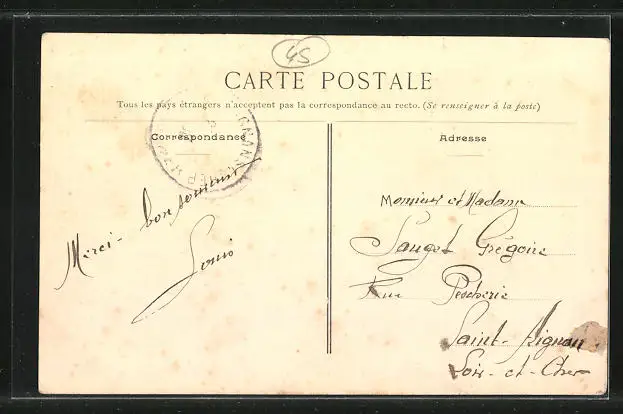 45
CARTE POSTALE
Tous les pays étrangers n'acceptent pas la correspondance au recto. (Se renseigner à la poste)
Correspondance
Adresse
Merci - bon souvenir
Louis
Monsieur et Madame
Sauget Grégoire
Rue Pescherie
Saint-Aignan
Loir-et-Cher